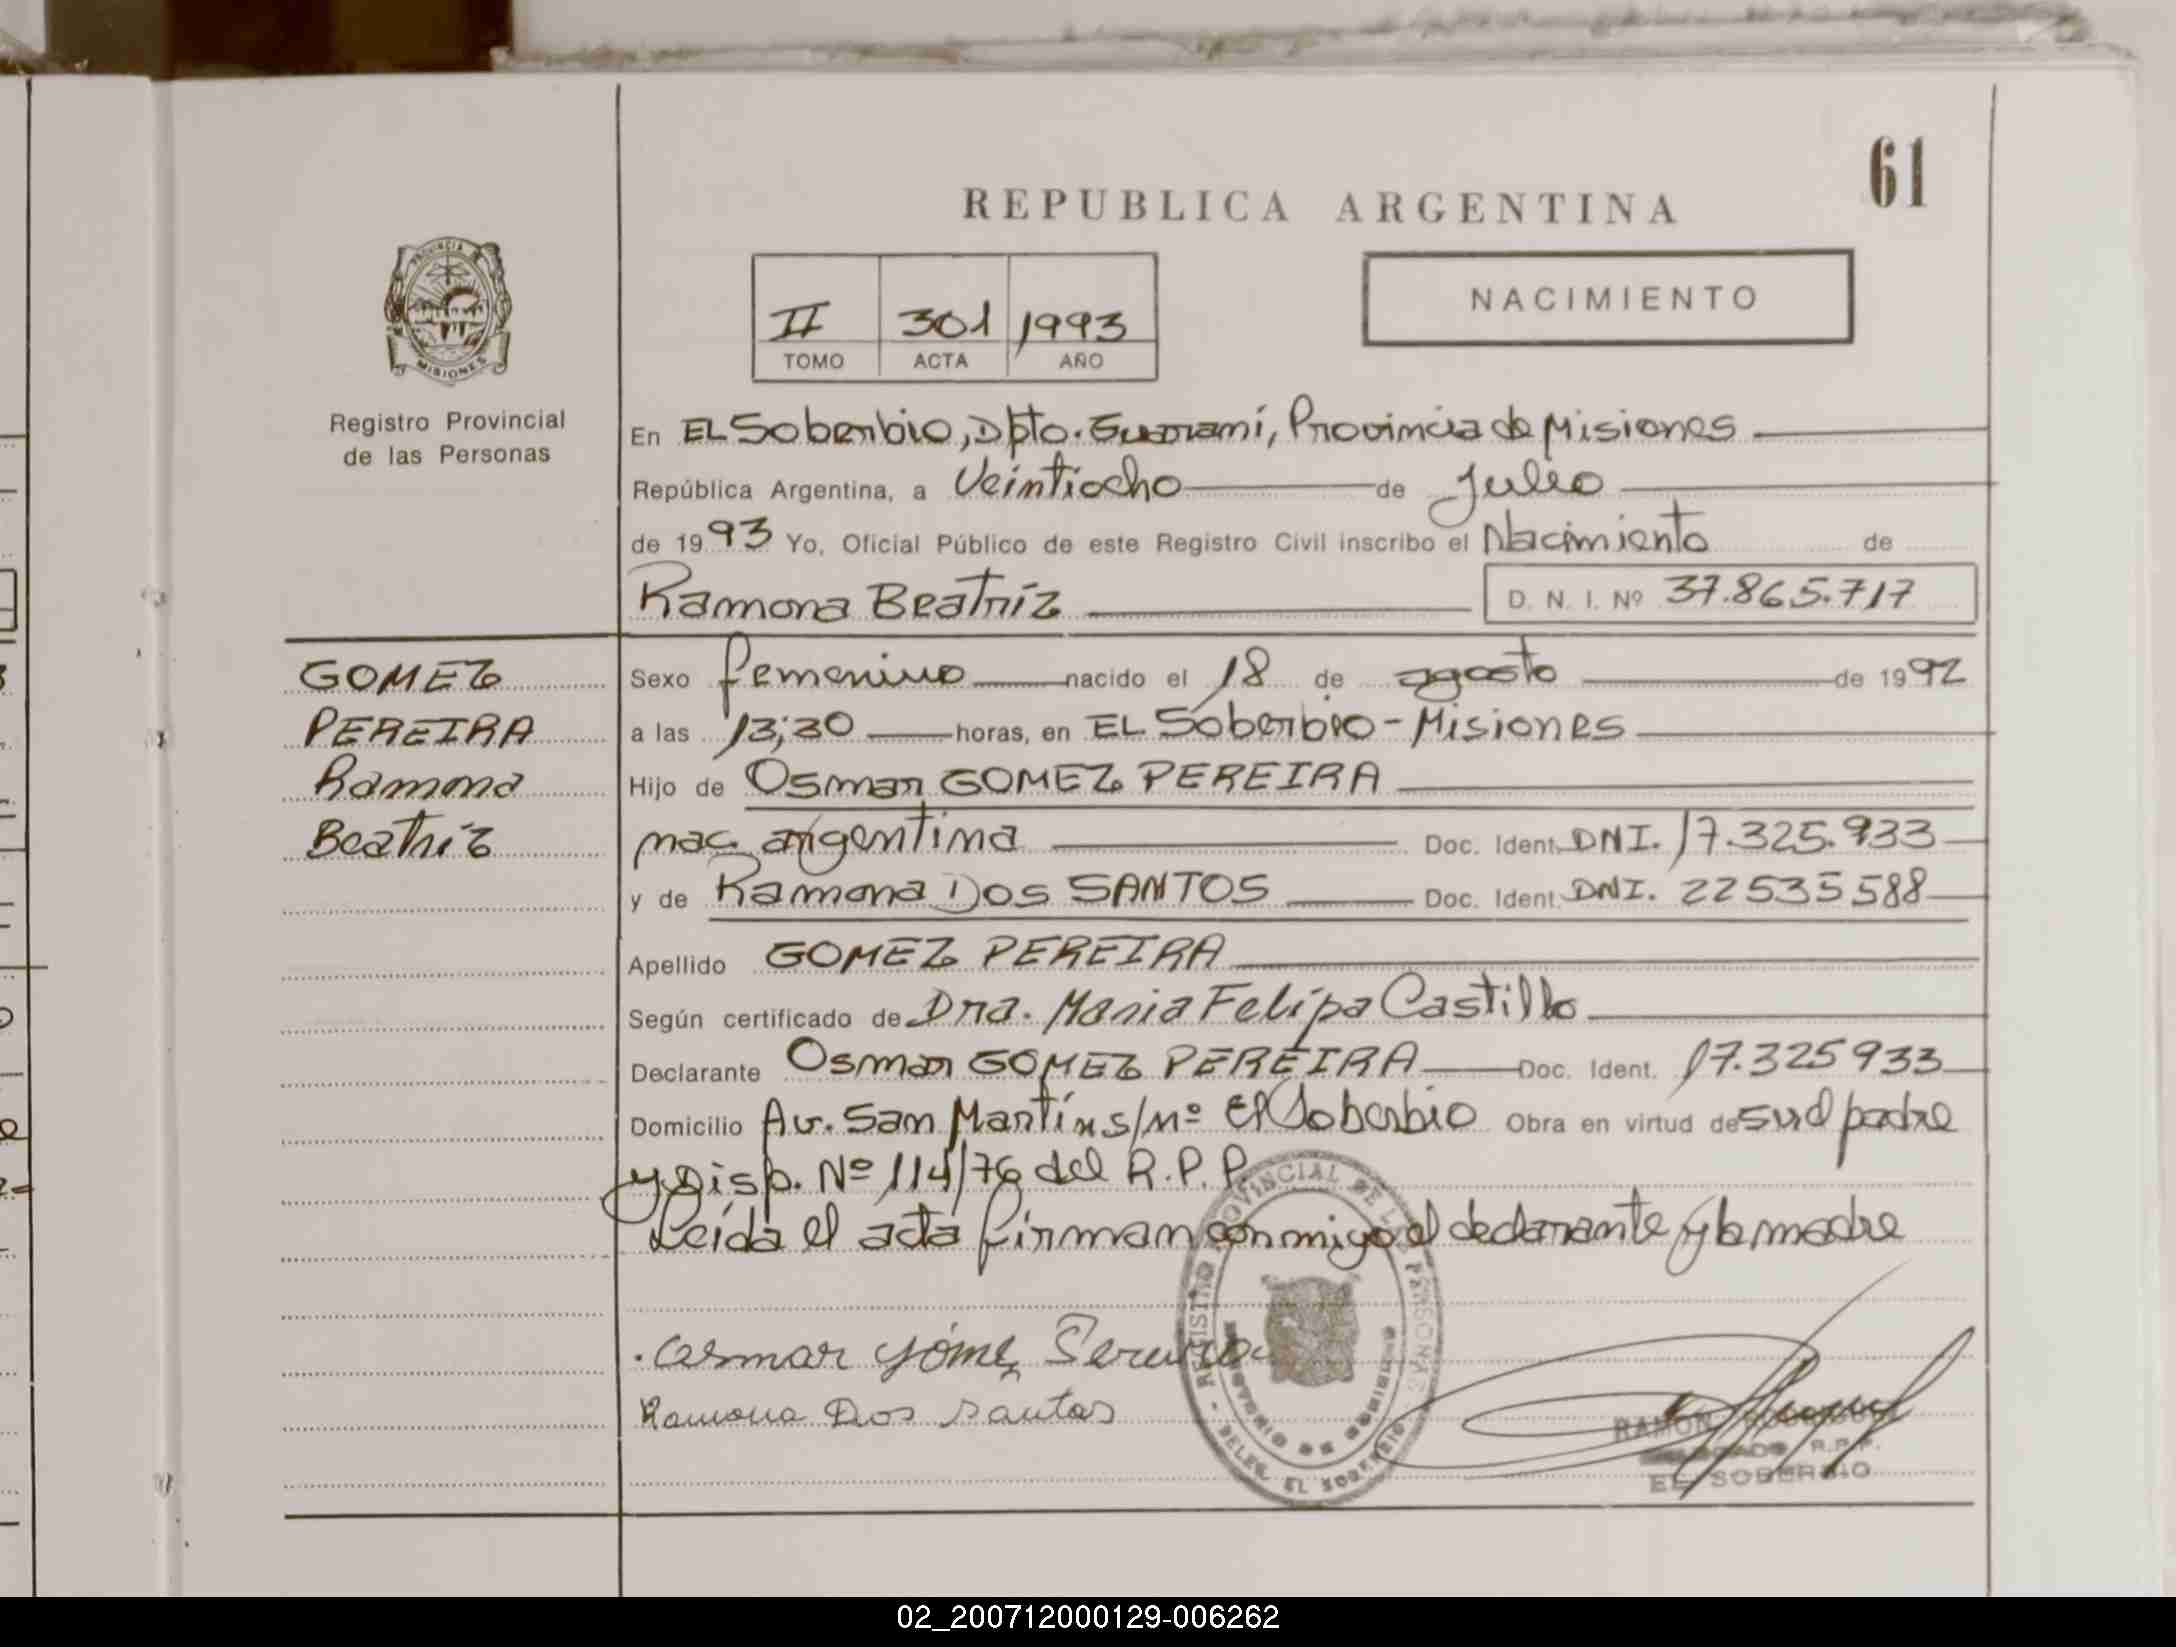 61
REPUBLICA ARGENTINA
PROVINCIA DE
MISIONES
NACIMIENTO
II 301 1993
TOMO ACTA AÑO
Registro Provincial
de las Personas
En EL Soberbio, Dpto. Guaraní, Provincia de Misiones
República Argentina, a Veintiocho de Julio
de 1993 Yo, Oficial Público de este Registro Civil inscribo el Nacimiento de
Ramona Beatriz D. N. I. Nº 37.865.717
GOMEZ
PEREIRA
Ramona
Beatriz
Sexo femenino nacido el 18 de agosto de 1992
a las 13;30 horas, en EL Soberbio - Misiones
Hijo de Osmar GOMEZ PEREIRA
nac. argentina Doc. Ident. DNI. 17.325.933
y de Ramona Dos SANTOS Doc. Ident. DNI. 22535588
Apellido GOMEZ PEREIRA
Según certificado de Dra. Maria Felipa Castillo
Declarante Osmar GOMEZ PEREIRA Doc. Ident. 17.325933
Domicilio Av. San Martín s/nº El Soberbio Obra en virtud de su el padre
y Disp. Nº 114/76 del R.P.P.
Leída el acta firman conmigo el declarante y la madre
Osmar Gómez Pereira
Ramona Dos santos
REGISTRO PROVINCIAL DE LAS PERSONAS
- DELEG. EL SOBERBIO -
RAMON
R.P.P.
EL SOBERBIO
02_200712000129-006262